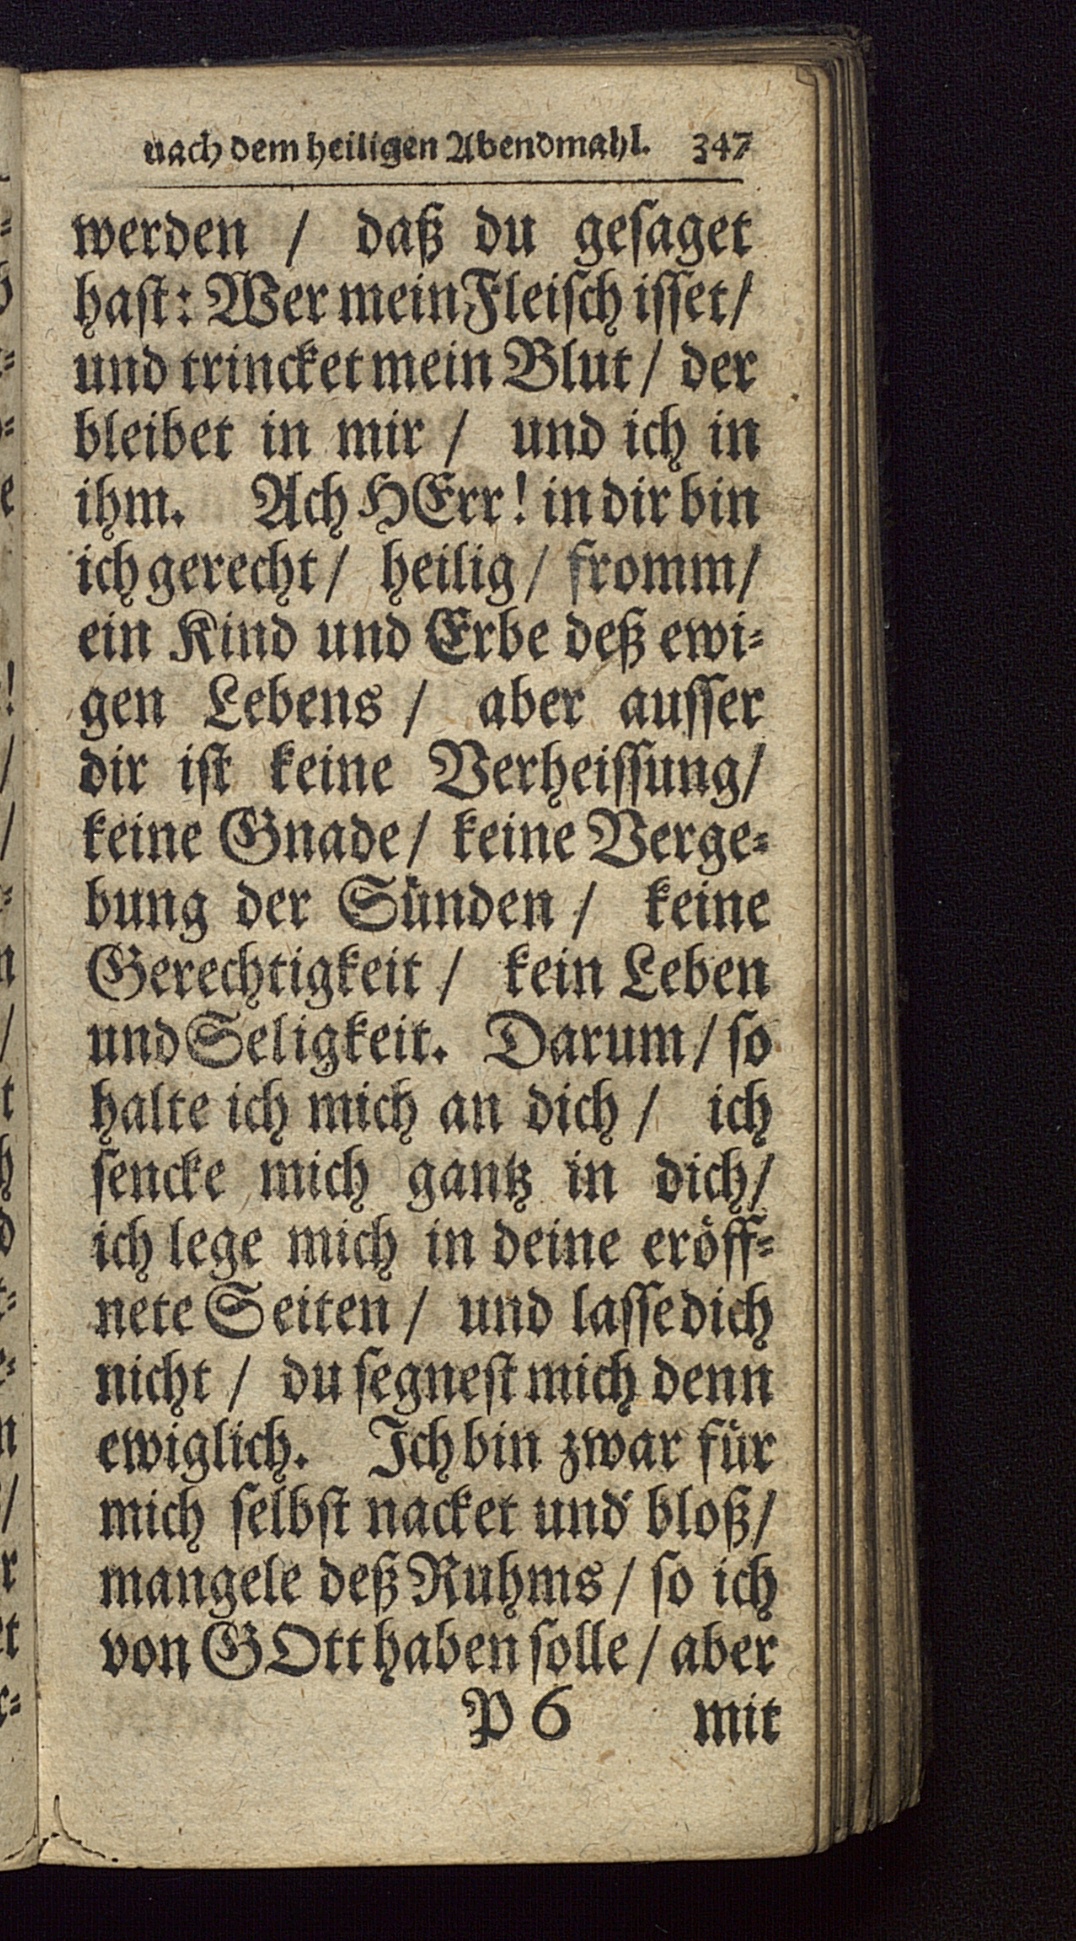 nach dem heiligen Abendmahl. 347
werden / daß du gesaget
hast: Wer mein Fleisch isset/
und trincket mein Blut / der
bleibet in mir / und ich in
ihm. Ach HErr! in dir bin
ich gerecht / heilig / fromm/
ein Kind und Erbe deß ewi-
gen Lebens / aber ausser
dir ist keine Verheissung/
keine Gnade / keine Verge-
bung der Sünden / keine
Gerechtigkeit / kein Leben
und Seligkeit. Darum / so
halte ich mich an dich / ich
sencke mich gantz in dich/
ich lege mich in deine eröff-
nete Seiten / und lasse dich
nicht / du segnest mich denn
ewiglich. Ich bin zwar für
mich selbst nacket und bloß/
mangele deß Ruhms / so ich
von GOtt haben solle / aber
P 6 mit